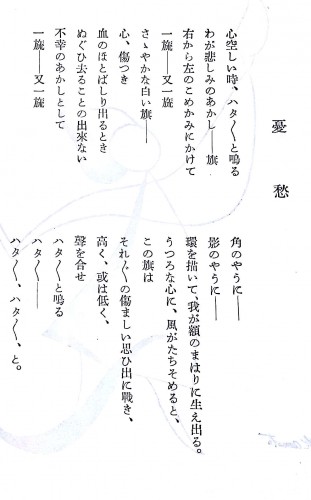 憂愁
心空しい時、ハタ〳〵と鳴る
わが悲しみのあかし――旗
右から左のこめかみにかけて
一旒――又一旒
さゝやかな白い旗――
心、傷つき
血のほとばしり出るとき
ぬぐひ去ることの出來ない
不幸のあかしとして
一旒――又一旒
角のやうに――
影のやうに――
環を描いて、我が額のまはりに生え出る。
うつろな心に、風がたちそめると、
この旗は
それ〴〵の傷ましい思ひ出に戰き、
高く、或は低く、
聲を合せ
ハタ〳〵と鳴る
ハタ〳〵――
ハタ〳〵、ハタ〳〵、と。